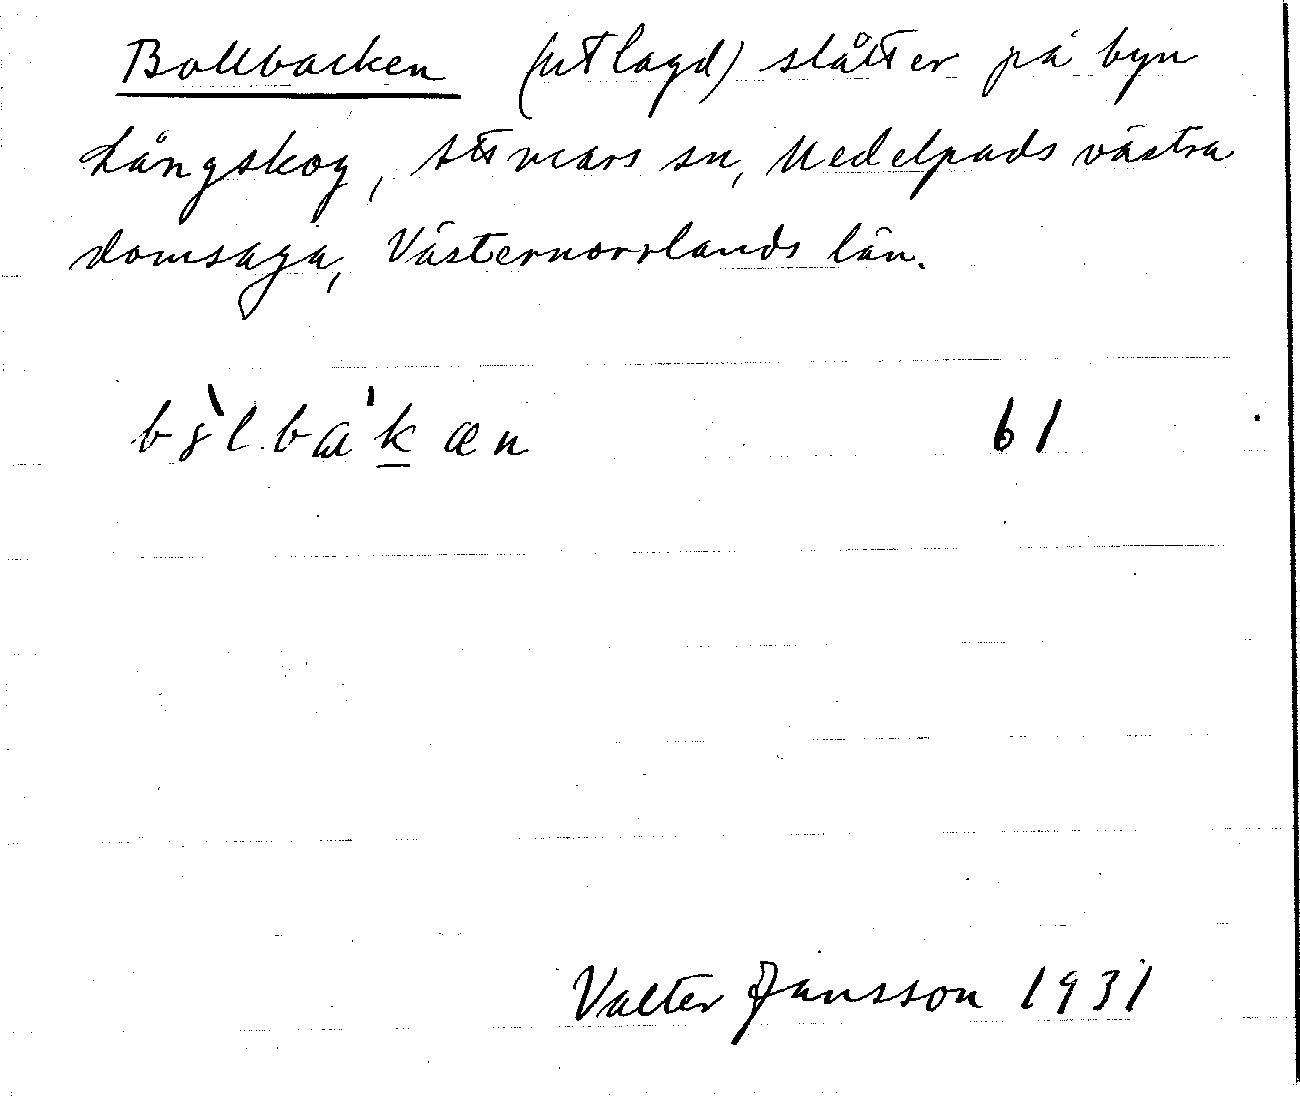 Bollbacken (utlagd) slåtter på byn
Långskog, Attmars sn, Medelpads västra
domsaga, Västernorrlands län.
61
Valter Jansson 1931